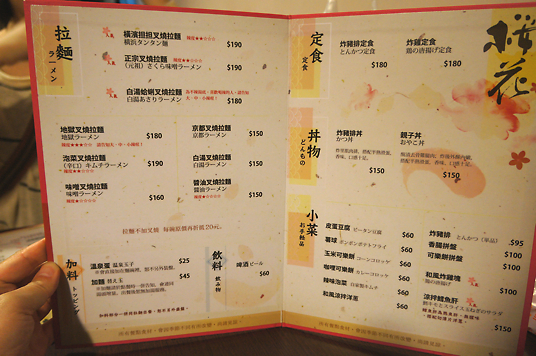 拉麵
ラーメン
人氣
橫濱担担叉燒拉麵 辣度★★☆☆☆
横浜タンタン麵
$190
人氣
正宗叉燒拉麵 辣度★☆☆☆☆
(元祖) さくら味噌ラーメン
$190
人氣
白湯蛤蜊叉燒拉麵
白湯あさりラーメン
$180
地獄叉燒拉麵
地獄ラーメン
$180
泡菜叉燒拉麵
(辛口) キムチラーメン
$190
味噌叉燒拉麵
味噌ラーメン
$160
京都叉燒拉麵
京都ラーメン
$150
白湯叉燒拉麵
白湯ラーメン
$150
醬油叉燒拉麵
醬油ラーメン
$150
拉麵不加叉燒 每碗原價再折抵20元。
加料
トッピング
溫泉蛋 温泉玉子
$25
加麵 替え玉
$45
飲料
飲み物
啤酒 ビール
$60
定食
定食
炸豬排定食
とんかつ定食
$180
炸雞定食
鶏の唐揚げ定食
$180
桜花
丼物
どんもの
炸豬排丼
かつ丼
$150
親子丼
おやこ丼
$150
小菜
お手軽品
皮蛋豆腐 ピータン豆腐
$60
薯球 ポンポンポテトフライ
$60
玉米可樂餅 コーンコロッケ
$60
咖哩可樂餅 カレーコロッケ
$60
辣味泡菜 自家製キムチ
$60
和風涼拌洋蔥
$60
炸豬排 とんかつ (単品)
$95
香腸拼盤
$100
可樂餅拼盤
$100
和風炸雞塊
鶏の唐揚げ
$100
涼拌鱈魚肝
$150